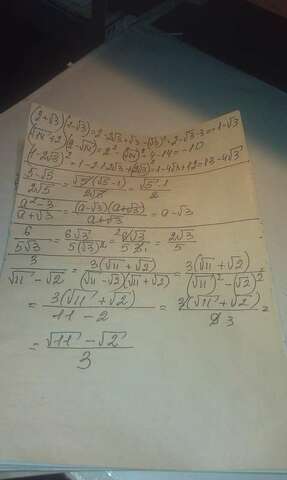 (2+√3)(1-√3)=2-2√3+√3-(√3)²=2-√3-3=-1-√3
(√14+2)(2-√14)=2²-(√14)²=4-14=-10
(1-2√3)²=1-2·1·2√3+(2√3)²=1-4√3+12=13-4√3
5-√5/2√5=√5(√5-1)/2√5=√5-1/2
a²-3/a+√3=(a-√3)(a+√3)/a+√3=a-√3
6/5√3=6√3/5(√3)²=6√3/5·3=2√3/5
3/√11-√2=3(√11+√2)/(√11-√3)(√11+√2)=3(√11+√2)/(√11)²-√2)²
=3(√11+√2)/11-2=3(√11+√2)/9 3=
=√11-√2/3